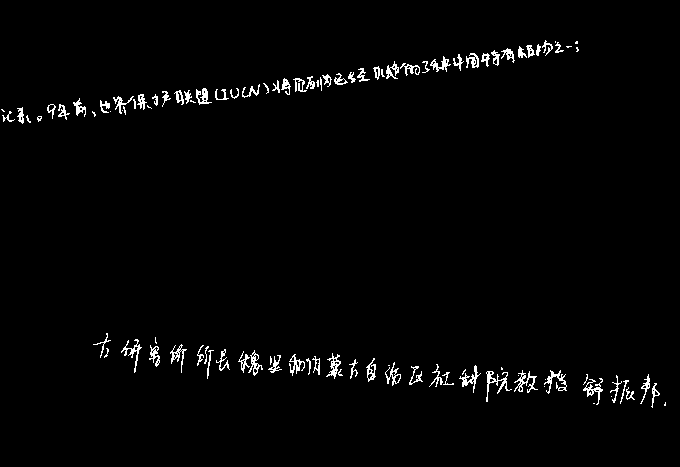 记录。9年前,世界保护联盟(IUCN)将它列为已经灭绝的3种中国特有植物之一;
古研究所所长穆里和内蒙古自治区社科院教授舒振邦.